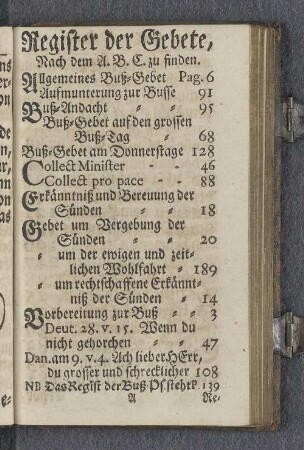 Register der Gebete,
Nach dem A. B. C. zu finden.
Allgemeines Buß-Gebet Pag. 6
Aufmunterung zur Busse 91
Buß-Andacht 〃 〃 95
Buß-Gebet auf den grossen
Buß-Tag 〃 68
Buß-Gebet am Donnerstage 128
Collect Minister - - 46
Collect pro pace - - 88
Erkänntniß und Bereuung der
Sünden 〃 〃 18
Gebet um Vergebung der
Sünden 〃 〃 20
〃 um der ewigen und zeit-
lichen Wohlfahrt 〃 189
〃 um rechtschaffene Erkännt-
niß der Sünden 〃 14
Vorbereitung zur Buß 〃 〃 3
Deut. 28. v. 15. Wenn du
nicht gehorchen 〃 〃 47
Dan. am 9. v. 4. Ach lieber HErr,
du grosser und schrecklicher 108
NB Das Regist der Buß-Ps steht 139
A Re-